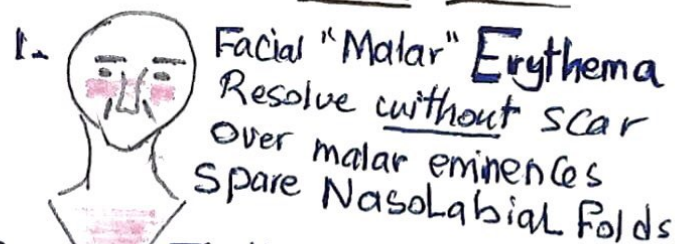 1- Facial "Malar" Erythema
Resolve without scar
Over malar eminences
Spare NasoLabial Folds